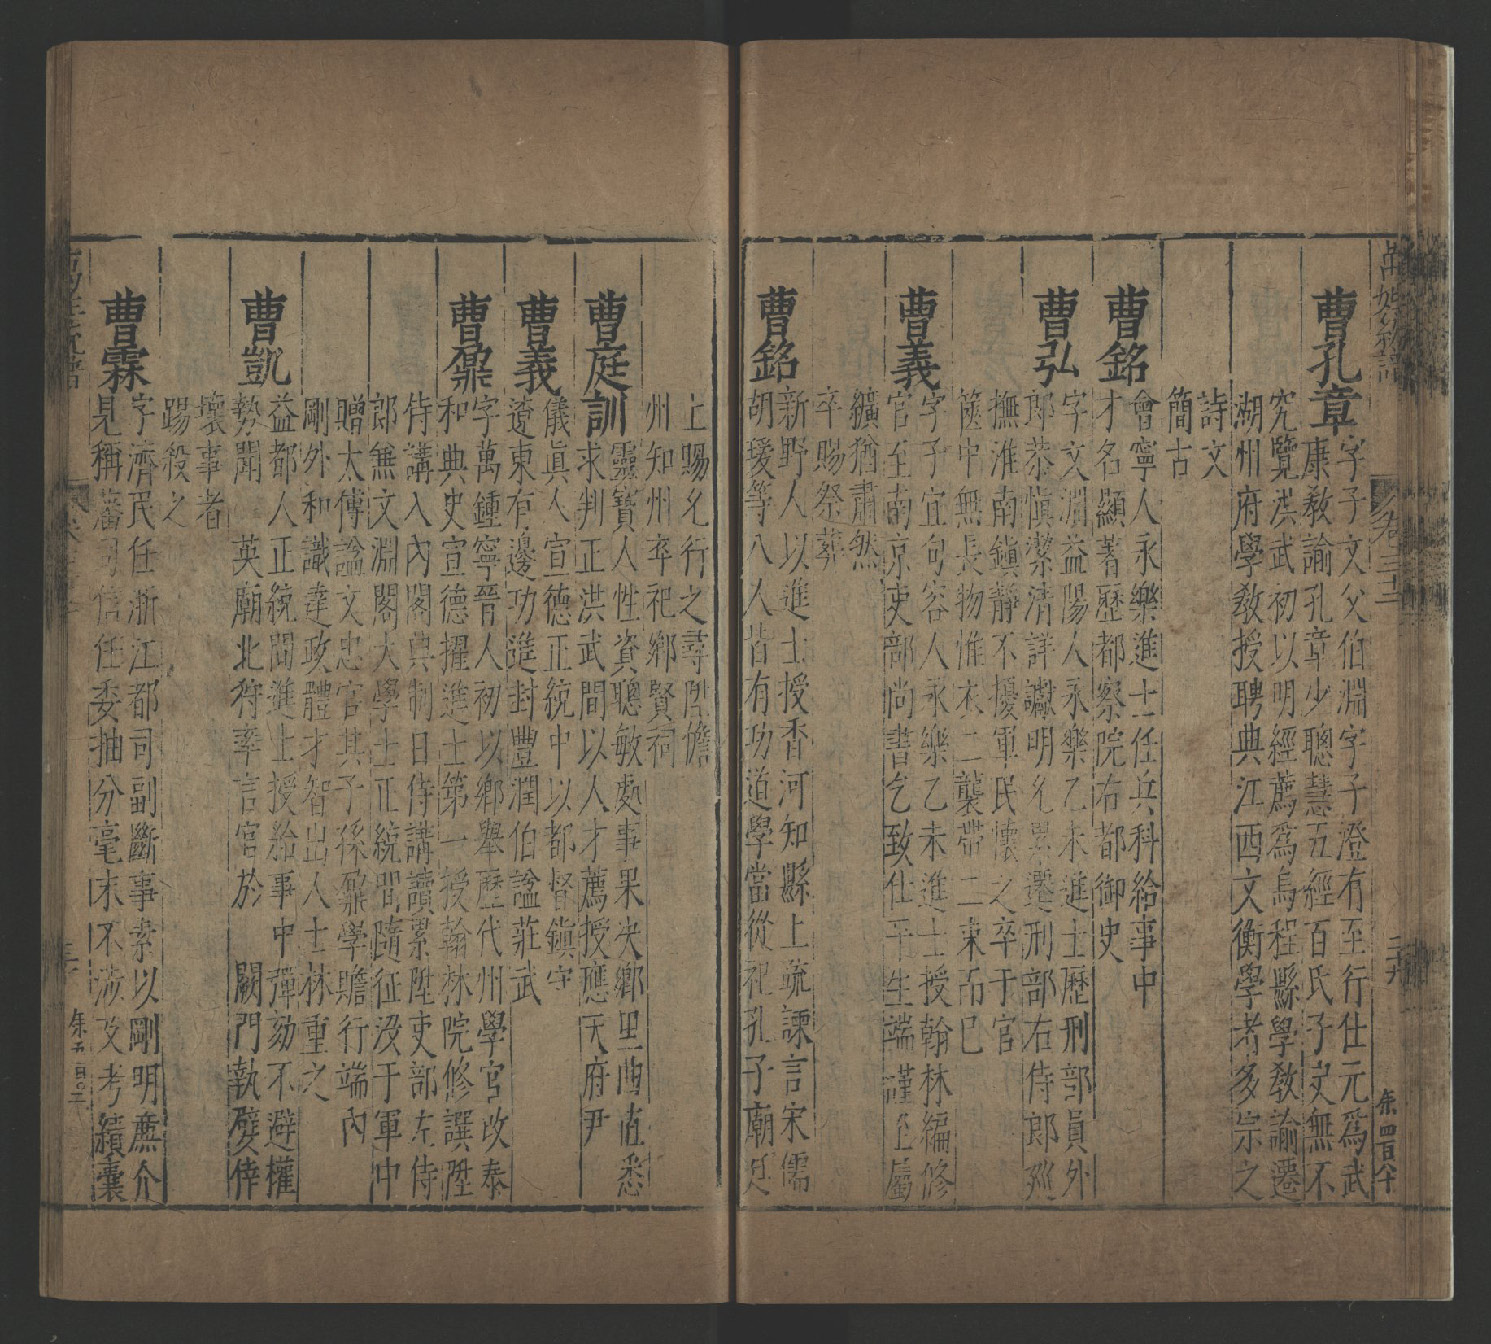 萬姓統譜
卷三十二
二十九
朱四百八十
曹孔章
字子文父伯淵字子澄有至行仕元爲武
康教諭孔章少聰慧五經百氏子史無不
究覽洪武初以明經薦爲烏程縣學教諭遷
湖州府學教授聘典江西文衡學者多宗之
詩文
簡古
曹銘
會寧人永樂進士任兵科給事中
才名顯著歷都察院右都御史
曹弘
字文淵益陽人永樂乙未進士歷刑部員外
郎恭慎潔清詳讞明允累遷刑部右侍郎巡
撫淮南鎮靜不擾軍民懷之卒于官
篋中無長物惟衣二襲帶二束而已
曹義
字子宜句容人永樂乙未進士授翰林編修
官至南京吏部尚書乞致仕平生端謹至屬
纊猶肅然
卒賜祭葬
曹銘
新野人以進士授香河知縣上疏諫言宋儒
胡瑗等八人皆有功道學當從祀孔子廟廷
上賜允行之尋陞儋
州知州卒祀鄉賢祠
曹庭訓
靈寶人性資聰敏處事果決鄉里曲直悉
求判正洪武間以人才薦授應天府尹
曹義
儀眞人宣德正統中以都督鎮守
遼東有邊功進封豐潤伯諡莊武
曹鼐
字萬鍾寧晉人初以鄉舉歷代州學官改泰
和典史宣德擢進士第一授翰林院修譔陞
侍講入內閣典制日侍講讀累陞吏部左侍
郎兼文淵閣大學士正統間隨征没于軍中
贈太傅諡文忠官其子孫鼐學贍行端內
剛外和識達政體才智出人士林重之
曹凱
益都人正統間進士授給事中彈劾不避權
勢聞 英廟北狩率言官於 闕門執嬖倖
壞事者
踢殺之
曹霖
字濟民任浙江都司副斷事素以剛明廉介
見稱藩司信任委抽分毫末不涉及考績囊
萬姓統譜
朱五百〇三